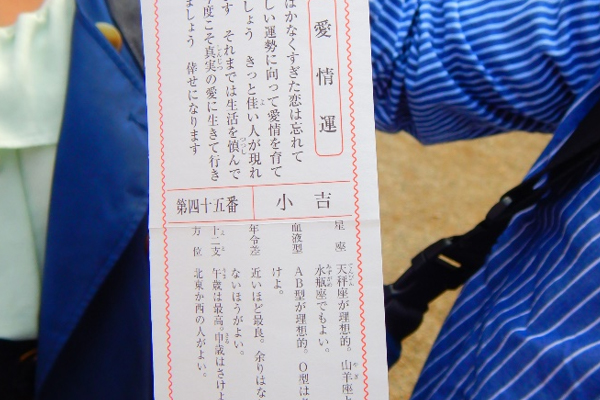 愛情運
はかなくすぎた恋は忘れて
しい運勢に向って愛情を育て
しょう きっと佳い人が現れ
す それまでは生活を慎んで
度こそ真実の愛に生きて行き
ましょう 倖せになります
小吉
第四十五番
星座 天秤座が理想的。山羊座
水瓶座でもよい。
血液型 AB型が理想的。O型は
けよ。
年令差 近いほど最良。余りはな
ないほうがよい。
十二支 午歳は最高。申歳はさけよ
方位 北東か西の人がよい。